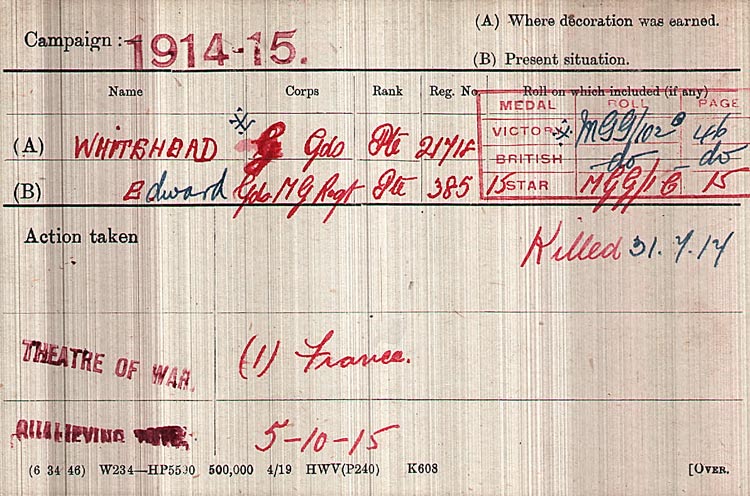 Campaign :- 1914-15.
(A) Where decoration was earned.
(B) Present situation.
Name Corps Rank Reg. No. Roll on which included (if any)
MEDAL ROLL PAGE
(A) WHITEHEAD G Gds Pte 21718 VICTORY MGG/102 B 46
BRITISH do do
(B) Edward Gds M G Regt Pte 385 15 STAR MGG/1 C 15
Action taken
Killed 31.7.17
THEATRE OF WAR. (1) France.
QUALIFYING DATE. 5-10-15
(6 34 46) W234—HP5590 500,000 4/19 HWV(P240) K608 [OVER.